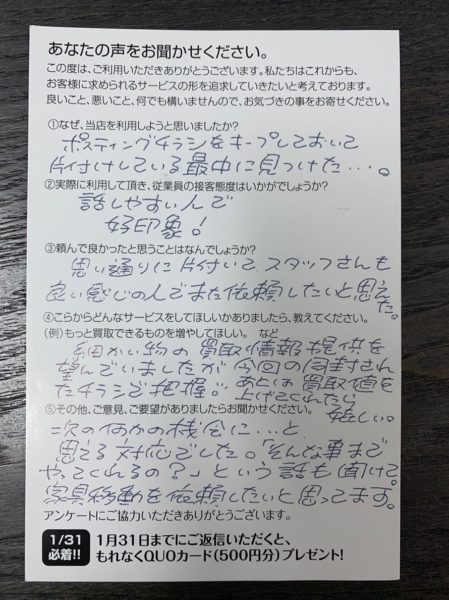 あなたの声をお聞かせください。
この度は、ご利用いただきありがとうございます。私たちはこれからも、
お客様に求められるサービスの形を追求していきたいと考えております。
良いこと、悪いこと、何でも構いませんので、お気づきの事をお寄せください。
①なぜ、当店を利用しようと思いましたか?
ポスティングチラシをキープしておいて
片付けしている最中に見つけた・・・。
②実際に利用して頂き、従業員の接客態度はいかがでしょうか?
話しやすい人で
好印象!
③頼んで良かったと思うことはなんでしょうか?
思い通りに片付いて、スタッフさんも
良い感じの人でまた依頼したいと思えた。
④こらからどんなサービスをしてほしいかありましたら、教えてください。
(例)もっと買取できるものを増やしてほしい。 など
細かい物の買取情報提供を
望んでいましたが今回の同封され
たチラシで把握。あとは買取値を
上げてくれたら
嬉しい。
⑤その他、ご意見、ご要望がありましたらお聞かせください。
次の何かの機会に・・・と
思える対応でした。「そんな事まで
やってくれるの?」という話も聞けて。
家具移動を依頼したいと思ってます。
アンケートにご協力いただきありがとうございます。
1/31
必着!!
1月31日までにご返信いただくと、
もれなくQUOカード(500円分)プレゼント!